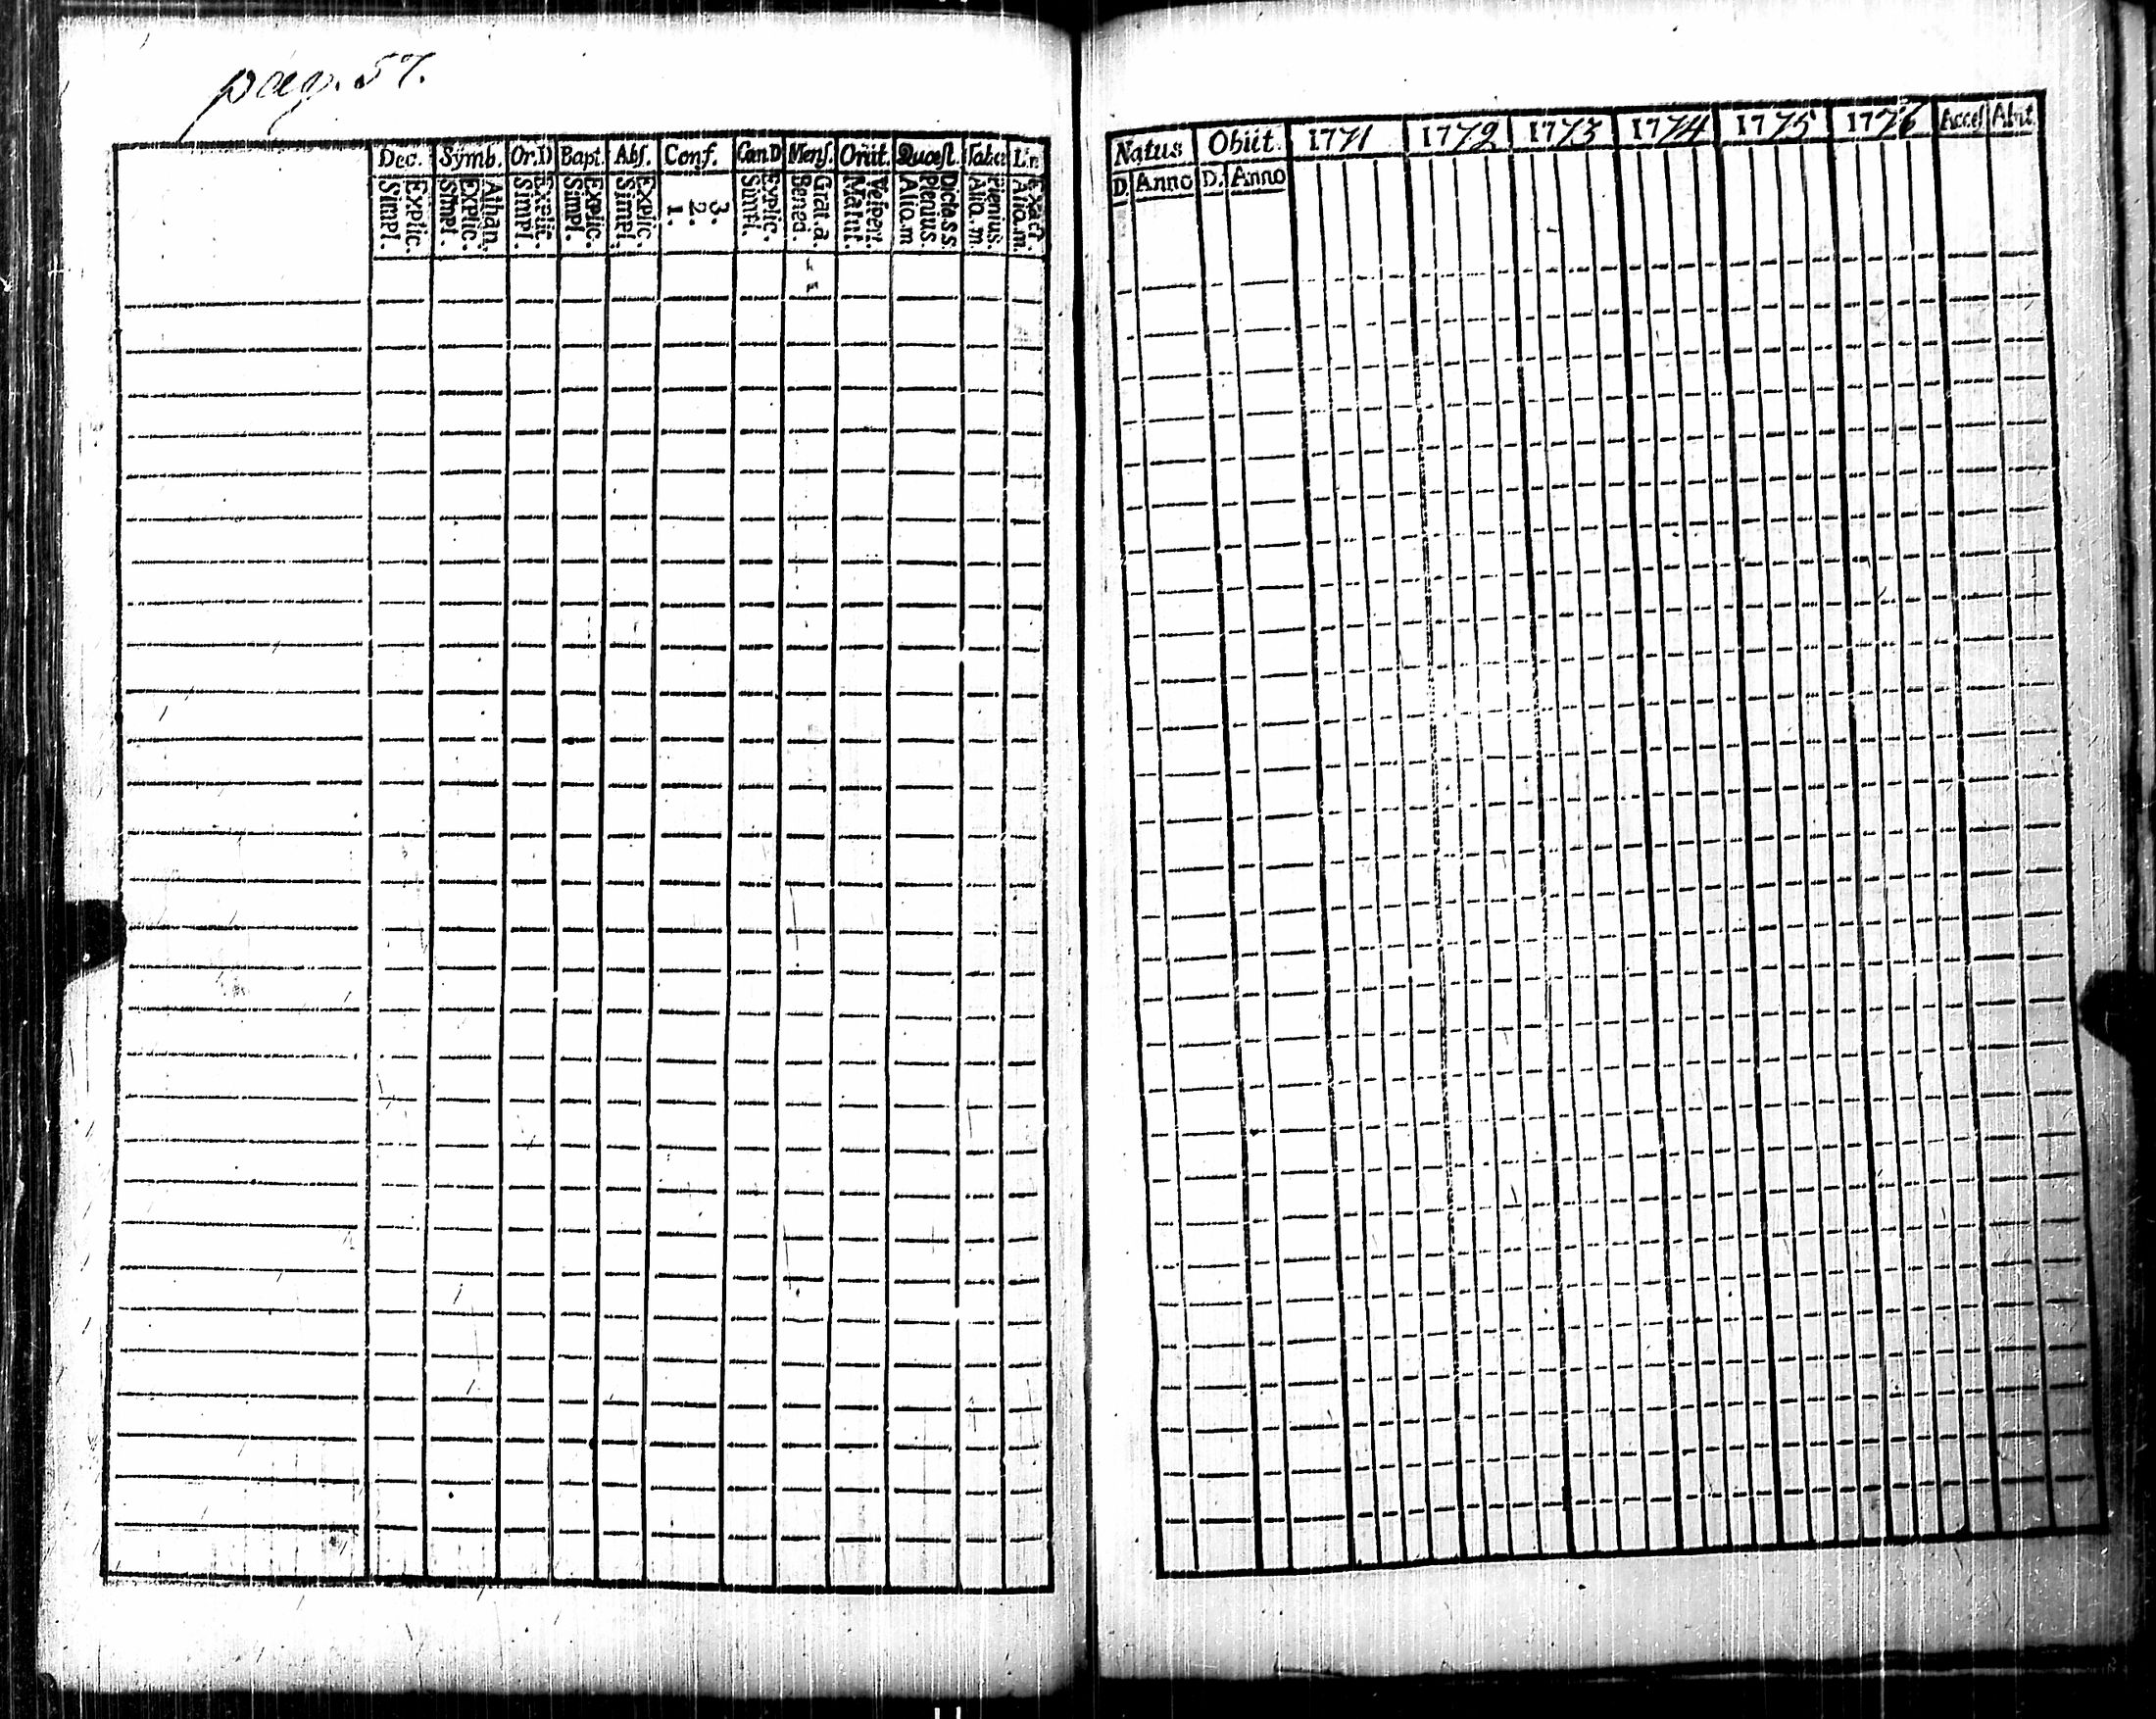 pag. 57.
Dec. Symb. Or.D Bapt. Abſ. Conf. Cœn.D Menſ. Orat. Quæſt. Tabu Lin
Explic. Simpl.
Athan. Explic. Simpl.
Explic. Simpl.
Explic. Simpl.
Explic. Simpl.
3. 2. 1.
Explic. Simpl.
Grat. a. Bened.
Veſpert. Matut.
Dicta.s.s. Plenius. Alio.m
Plenius. Alio.m.
Exact. Alio.m.
Natus Obiit. 1771 1772 1773 1774 1775 1776 Acceſ Abit.
D. Anno D. Anno